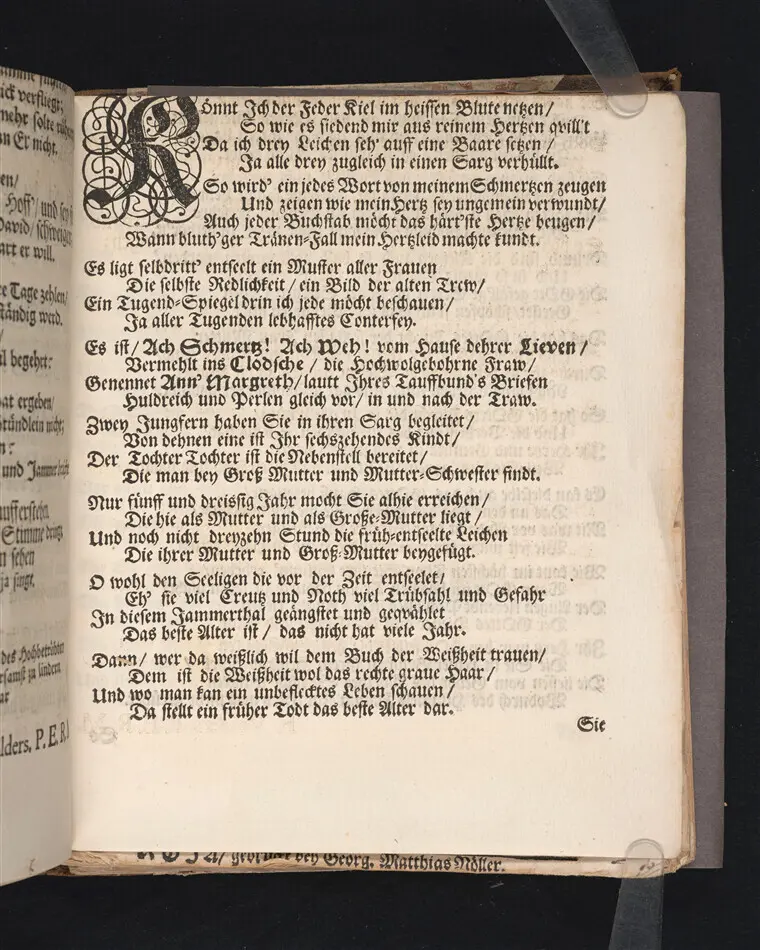 ick verfliegt;
mehr solte
n Er nicht.
en/
Hoff/ und
David/
art er will.
e Tage zehlen/
ständig werd.
l begehrt:
at ergeben/
stündlein nicht;
und Jammer
aufferstehn
Stimme
n sehen
ja singt,
des Hochbetrübten
zu lindern
lders, P. E. R.
Könnt Ich der Feder Kiel im heissen Blute netzen/
So wie es siedend mir aus reinem Hertzen qvill't
Da ich drey Leichen seh' auff eine Baare setzen/
Ja alle drey zugleich in einen Sarg verhüllt.
So wird' ein jedes Wort von meinem Schmertzen zeugen
Und zeigen wie mein Hertz sey ungemein verwundt/
Auch jeder Buchstab möcht das härt'ste Hertze beugen/
Wann bluth'ger Tränen-Fall mein Hertzleid machte kundt.
Es ligt selbdritt' entseelt ein Muster aller Frauen
Die selbste Redlichkeit/ ein Bild der alten Trew/
Ein Tugend-Spiegel drin ich jede möcht beschauen/
Ja aller Tugenden lebhafftes Conterfey.
Es ist/ Ach Schmertz! Ach Weh! vom Hause dehrer Lieven/
Vermehlt ins Clodsche/ die Hochwolgebohrne Fraw/
Genennet Ann' Margreth/ lautt Ihres Tauffbund's Briefen
Huldreich und Perlen gleich vor/ in und nach der Traw.
Zwey Jungfern haben Sie in ihren Sarg begleitet/
Von dehnen eine ist Ihr sechszehendes Kindt/
Der Tochter Tochter ist die Nebenstell bereitet/
Die man bey Groß Mutter und Mutter-Schwester findt.
Nur fünff und dreissig Jahr mocht Sie alhie erreichen/
Die hie als Mutter und als Große-Mutter liegt/
Und noch nicht dreyzehn Stund die früh-entseelte Leichen
Die ihrer Mutter und Groß-Mutter beygefügt.
O wohl den Seeligen die vor der Zeit entseelet/
Eh' sie viel Creutz und Noth viel Trübsahl und Gefahr
In diesem Jammerthal geängstet und geqvählet
Das beste Alter ist/ das nicht hat viele Jahr.
Dann/ wer da weißlich wil dem Buch der Weißheit trauen/
Dem ist die Weißheit wol das rechte graue Haar/
Und wo man kan ein unbeflecktes Leben schauen/
Da stellt ein früher Todt das beste Alter dar.
Sie
gedruckt bey Georg. Matthias Nöller.